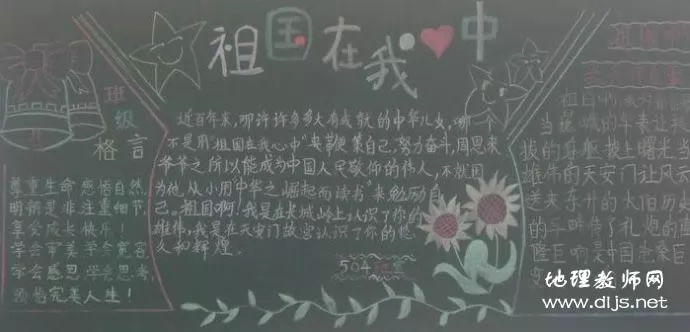 祖国在我中
班级格言
尊重生命,感悟自然,
明朝是非,注重细节,
享受成长快乐!
学会审美,学会宽容,
学会感恩,学会思考,
完美人生!
近百年来,哪许许多多大有成就的中华儿女,哪
不是用"祖国在我心中"来鞭策自己,努力奋斗,周恩来
爷爷之所以能成为中国人民敬仰的伟人,不就因
为他从小用"中华之崛起而读书"来勉励自
己。祖国啊!我是在长城岭上认识了你的
雄伟,我是在天安门故宫认识了你的悠
久和辉煌。
504
当城的车来让我
拔的脊躯披上曙光当
雄伟的天安门让风云
送来东升的太阳历史
的斗畔伴了礼炮的
隆巨响是中国沧桑巨
地理教师网
www.dljs.net